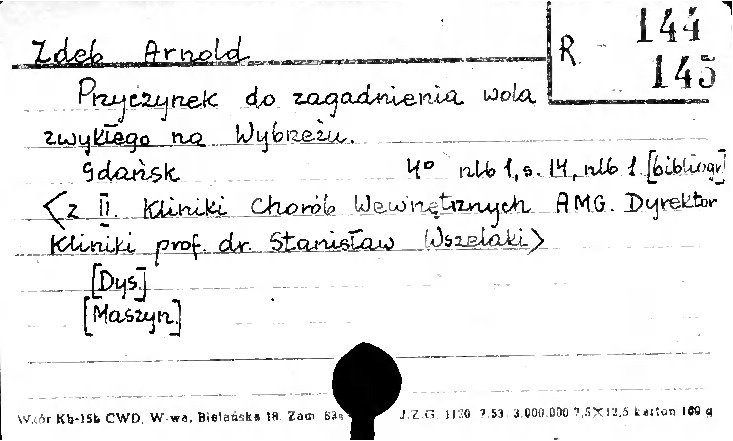 Zdeb Arnold
R 144
145
Przyczynek do zagadnienia wola
zwykłego na Wybrzeżu.
Gdańsk 4° nlb 1, s. 14, nlb 1 [bibliogr]
<z II. Kliniki Chorób Wewnętrznych AMG. Dyrektor
Kliniki prof. dr. Stanisław Wszelaki>
[Dys.]
[Maszyn.]
Wzór Kb-15b CWD, W-wa, Bielańska 18. Zam. J.Z.G. 1120 7.53. 3.000.000 7,5×12,5 karton 169 g